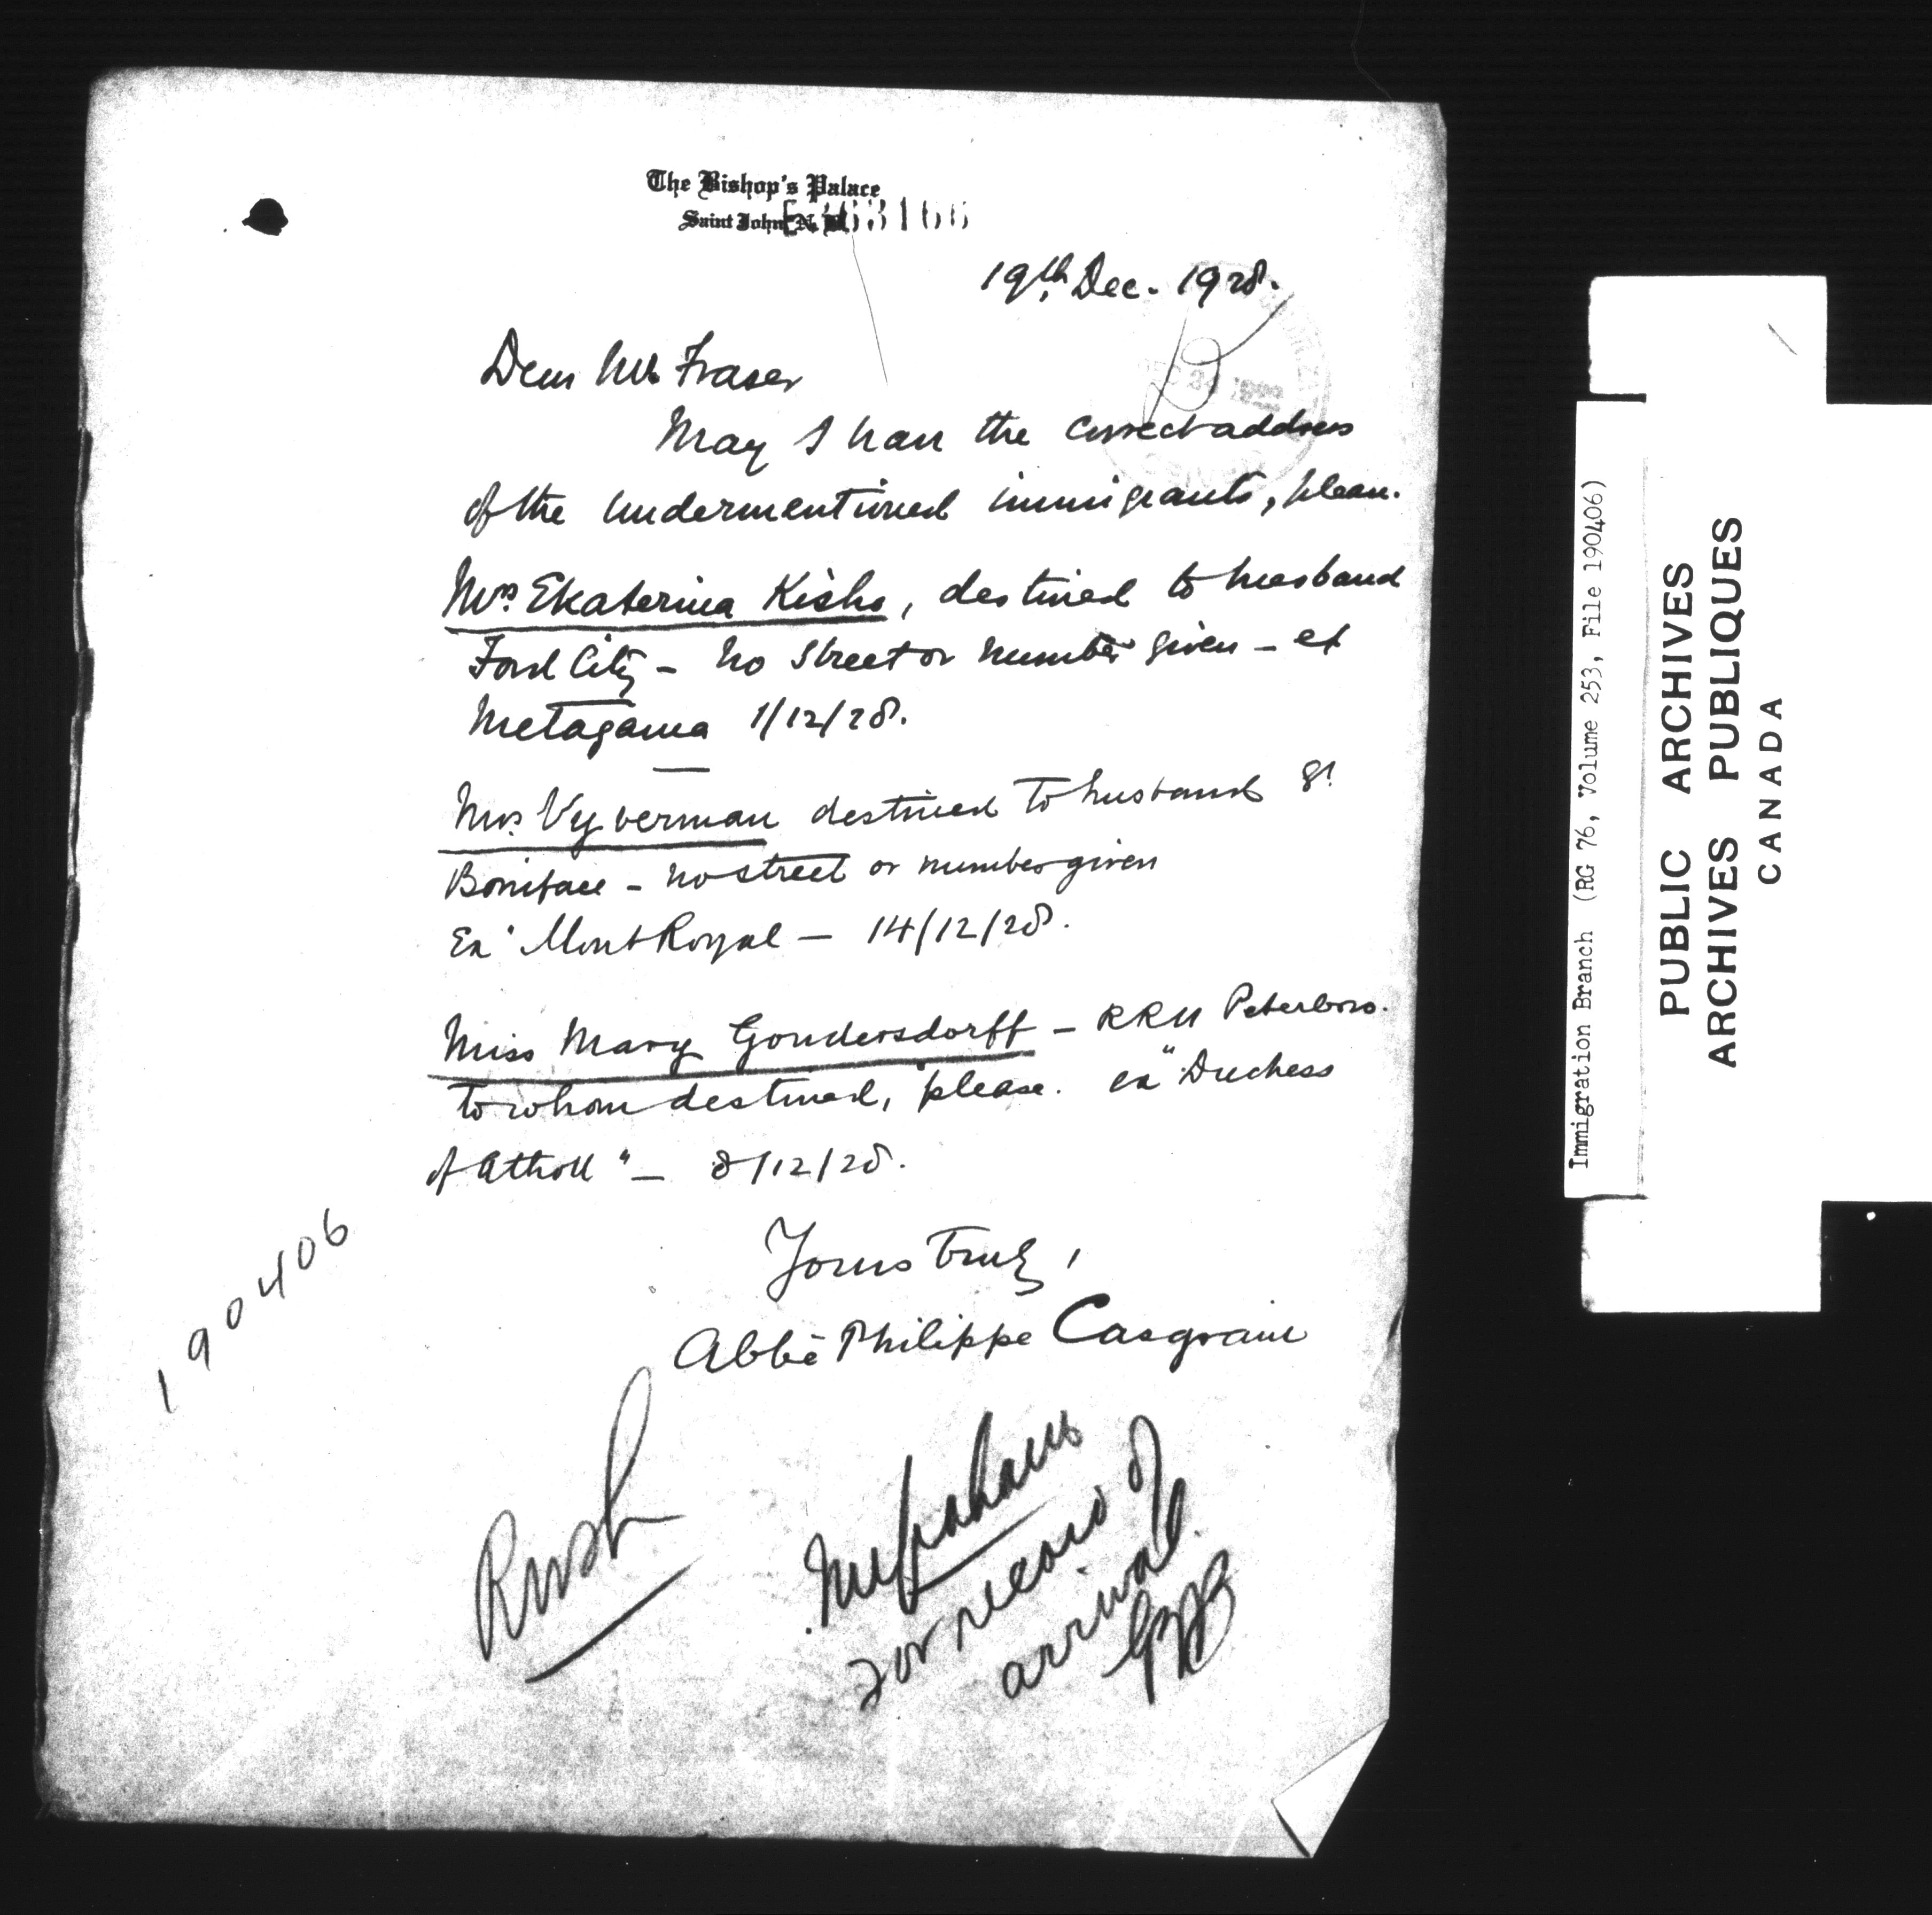 The Bishop's Palace
Saint John, N. B.
19th Dec. 1928.
Dear Mr. Fraser
May I have the correct address
of the undermentioned immigrants, please.
Mrs. Ekaterina Kisho, destined to husband
Ford City - no street or number given - ex
Metagama 1/12/28.
Mrs. Vyverman destined to husband St
Boniface - no street or number given
Ex "Mont Royal - 14/12/28.
Miss Mary Gondersdorff - RR11 Peterboro.
to whom destined, please. ex "Duchess
of Atholl" - 8/12/28.
Yours truly,
Abbé Philippe Casgrain
190406
Rush
Mr Graham
for record of
arrival.
Immigration Branch (RG 76, Volume 253, File 190406)
PUBLIC ARCHIVES
ARCHIVES PUBLIQUES
CANADA